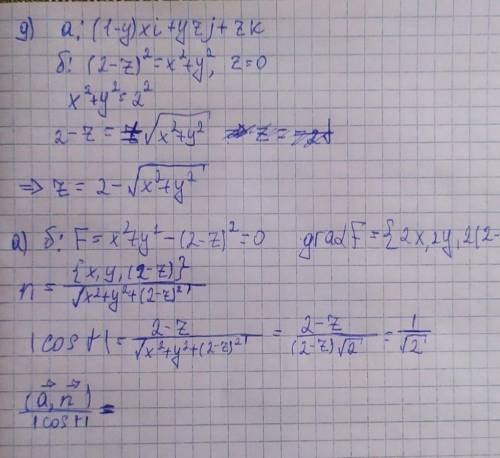 g) a: (1-y)xi+yzj+zk
б: (2-z)²=x²+y², z=0
x²+y²=2²
2-z=√(x²+y²)
⇒ z=2-√(x²+y²)
a) б: F=x²+y²-(2-z)²=0 gradF={2x,2y,2(2-
n={x,y,(2-z)}/√(x²+y²+(2-z)²)
|cosγ|=(2-z)/√(x²+y²+(2-z)²)=(2-z)/((2-z)√2)=1/√2
(a⃗,n⃗)/|cosγ|=